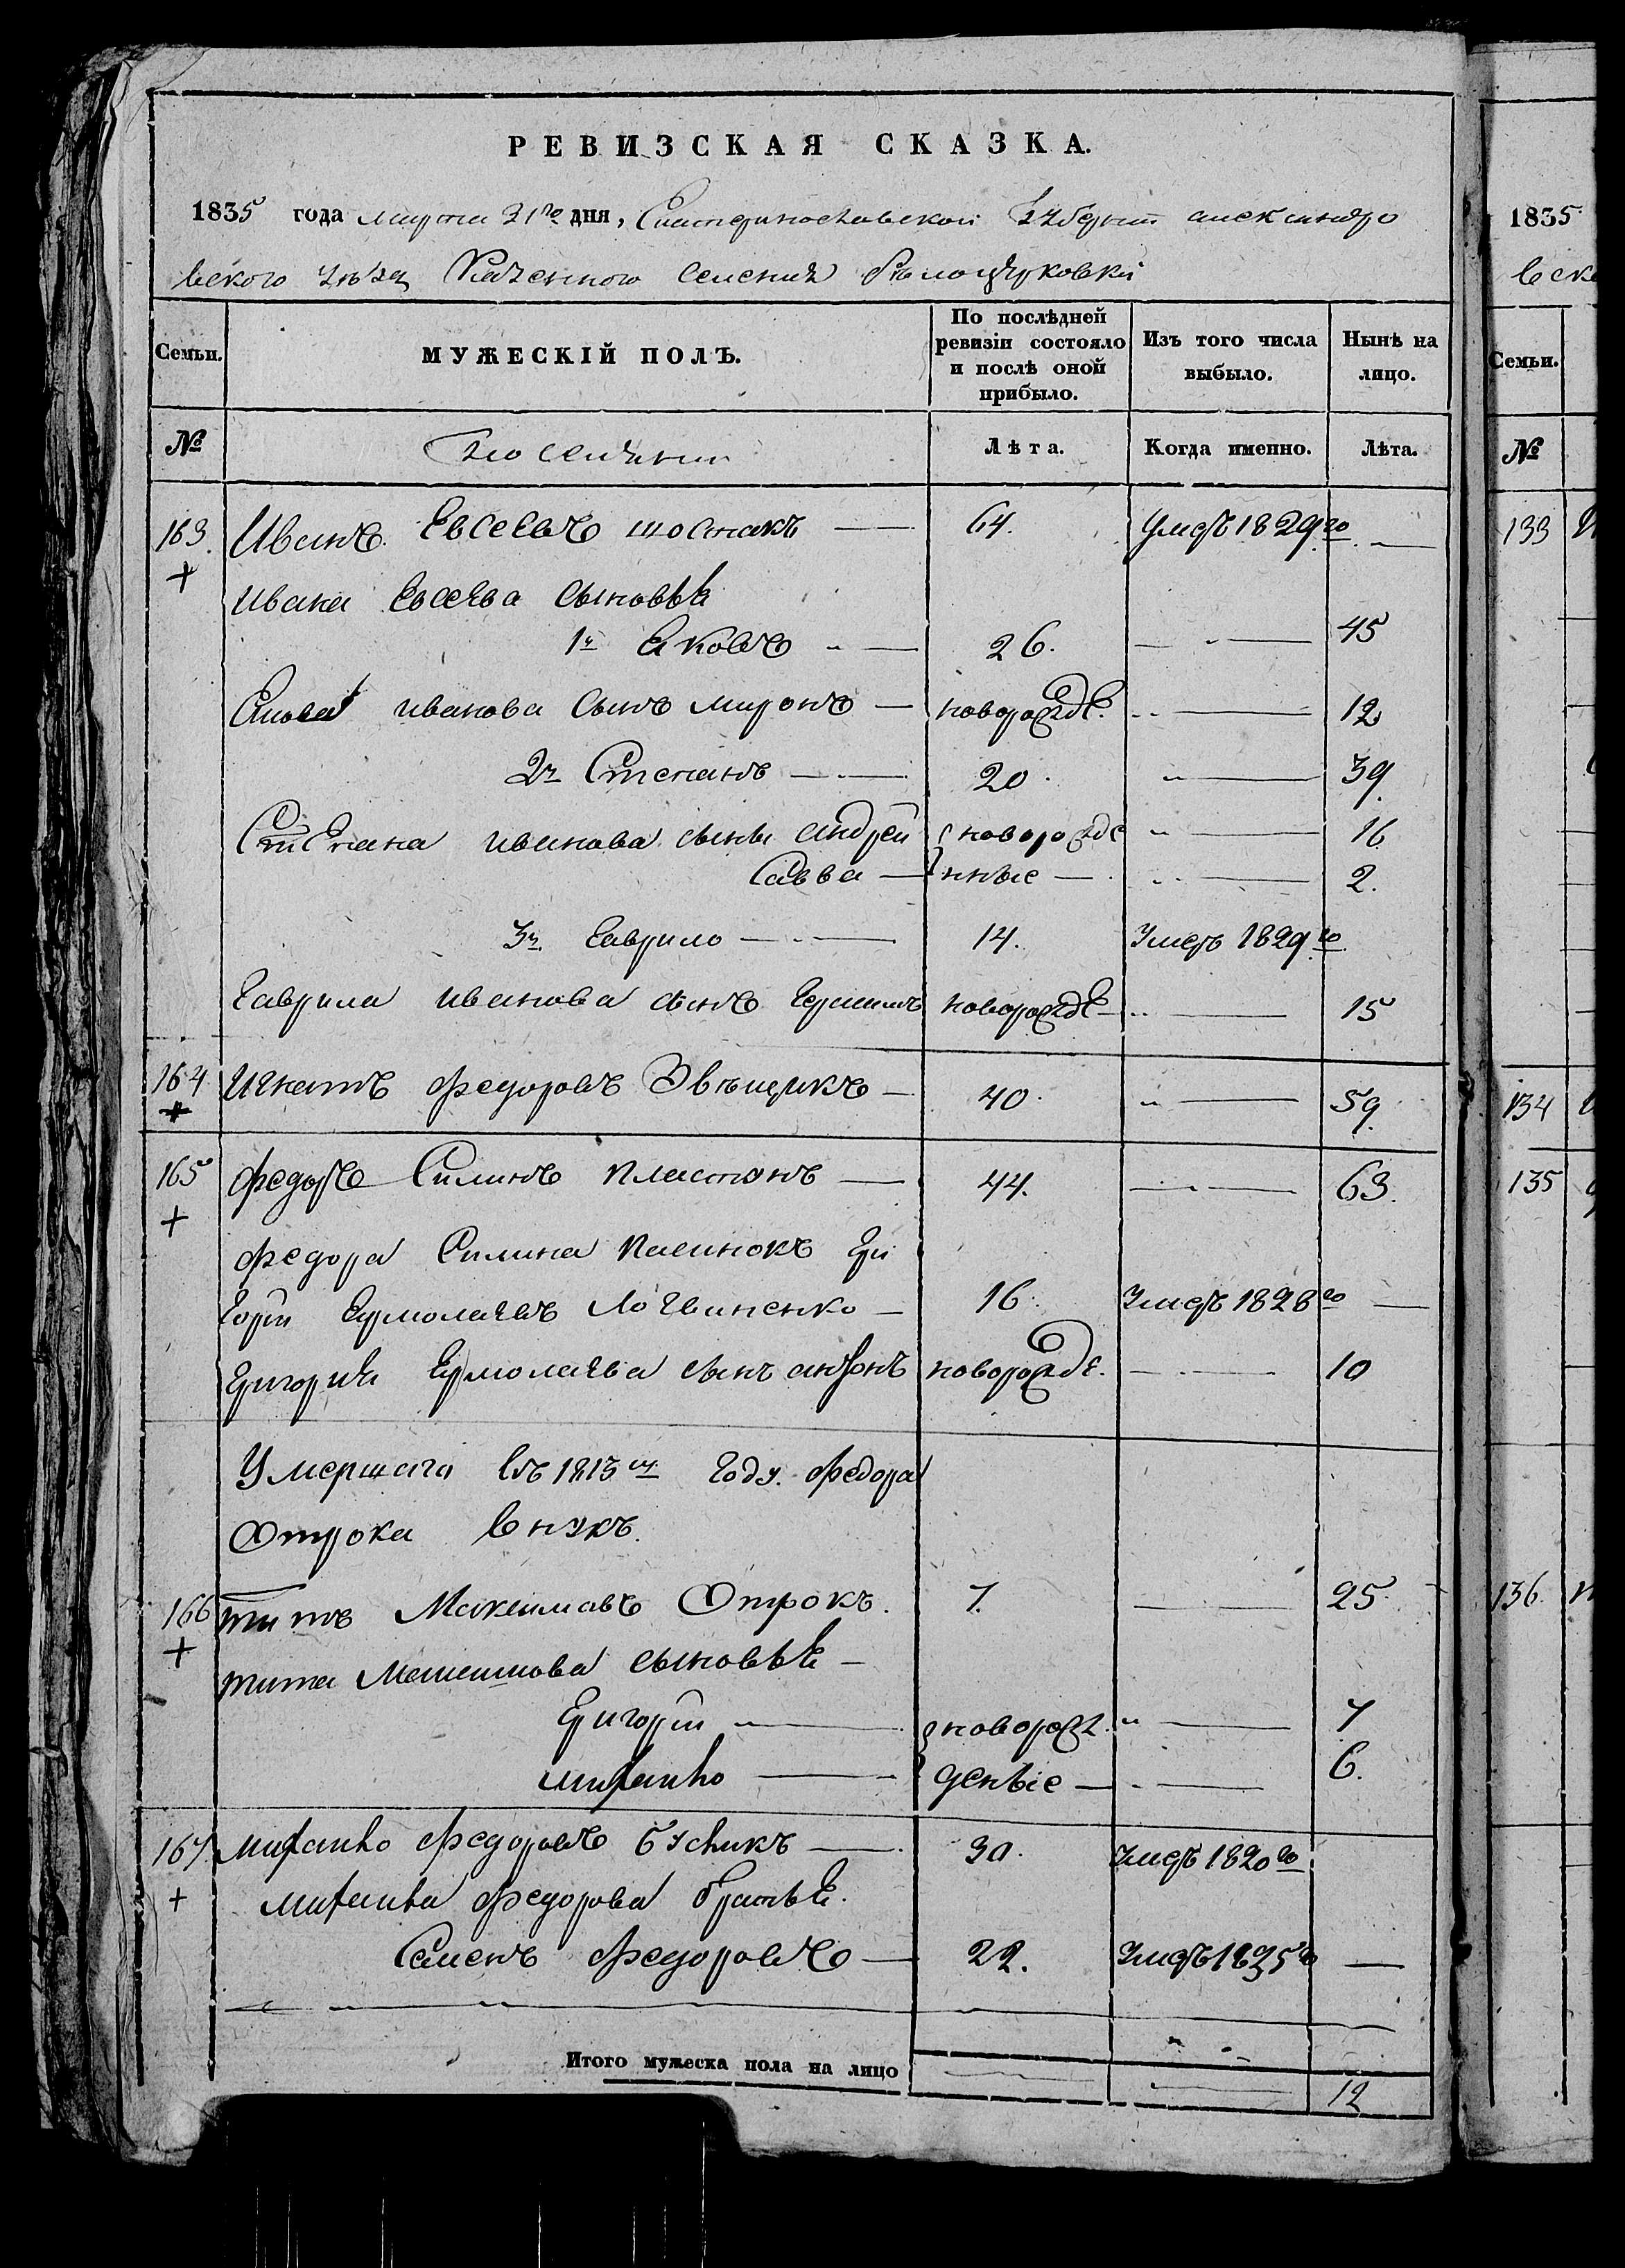 РЕВИЗСКАЯ СКАЗКА.
1835 года марта 21го дня, Екатеринославской Губернии александро
вского уезда Казенного селения белоцерковки
Семьи.
МУЖЕСКІЙ ПОЛЪ.
По послѣдней ревизіи состояло и послѣ оной прибыло.
Изъ того числа выбыло.
Нынѣ на лицо.
№
поселяни
Лѣта.
Когда именно.
Лѣта.
163 Иванъ Евсеевъ шостакъ — 64. умеръ 1829го —
Ивана Евсеева сыновья
1й Яковъ — 26. — 45
Якова иванова сынъ миронъ — новорожде. — 12
2й Степанъ — 20 — 39
Степана иванова сыны андрей новорожде — 16
Савва — нные — 2.
3й Гаврило — 14. умеръ 1829го
Гаврила иванова сынъ герасимъ новорожде — 15
164 Игнатъ федоровъ — 40 — 59
165 федоръ Силинъ пластунъ — 44. — 63.
федора Силина пасинокъ гри
горій ермолаевъ Логвиненко — 16. умеръ 1828го —
григорія ермолаева сынъ антонъ новорожде. — 10
Умершаго въ 1813м году федора
Отрока внукъ.
166 титъ Максимовъ Отрокъ. 7. — 25
тита Максимова сыновья —
григорій — новорож — 7
михайло — деные — 6.
167 михайло федоровъ — 30. умеръ 1820го
михайла федорова братья.
Семенъ федоровъ — 22. умеръ 1835го —
Итого мужеска пола на лицо 12
1835
вско
Семьи.
№
133
134
135
136